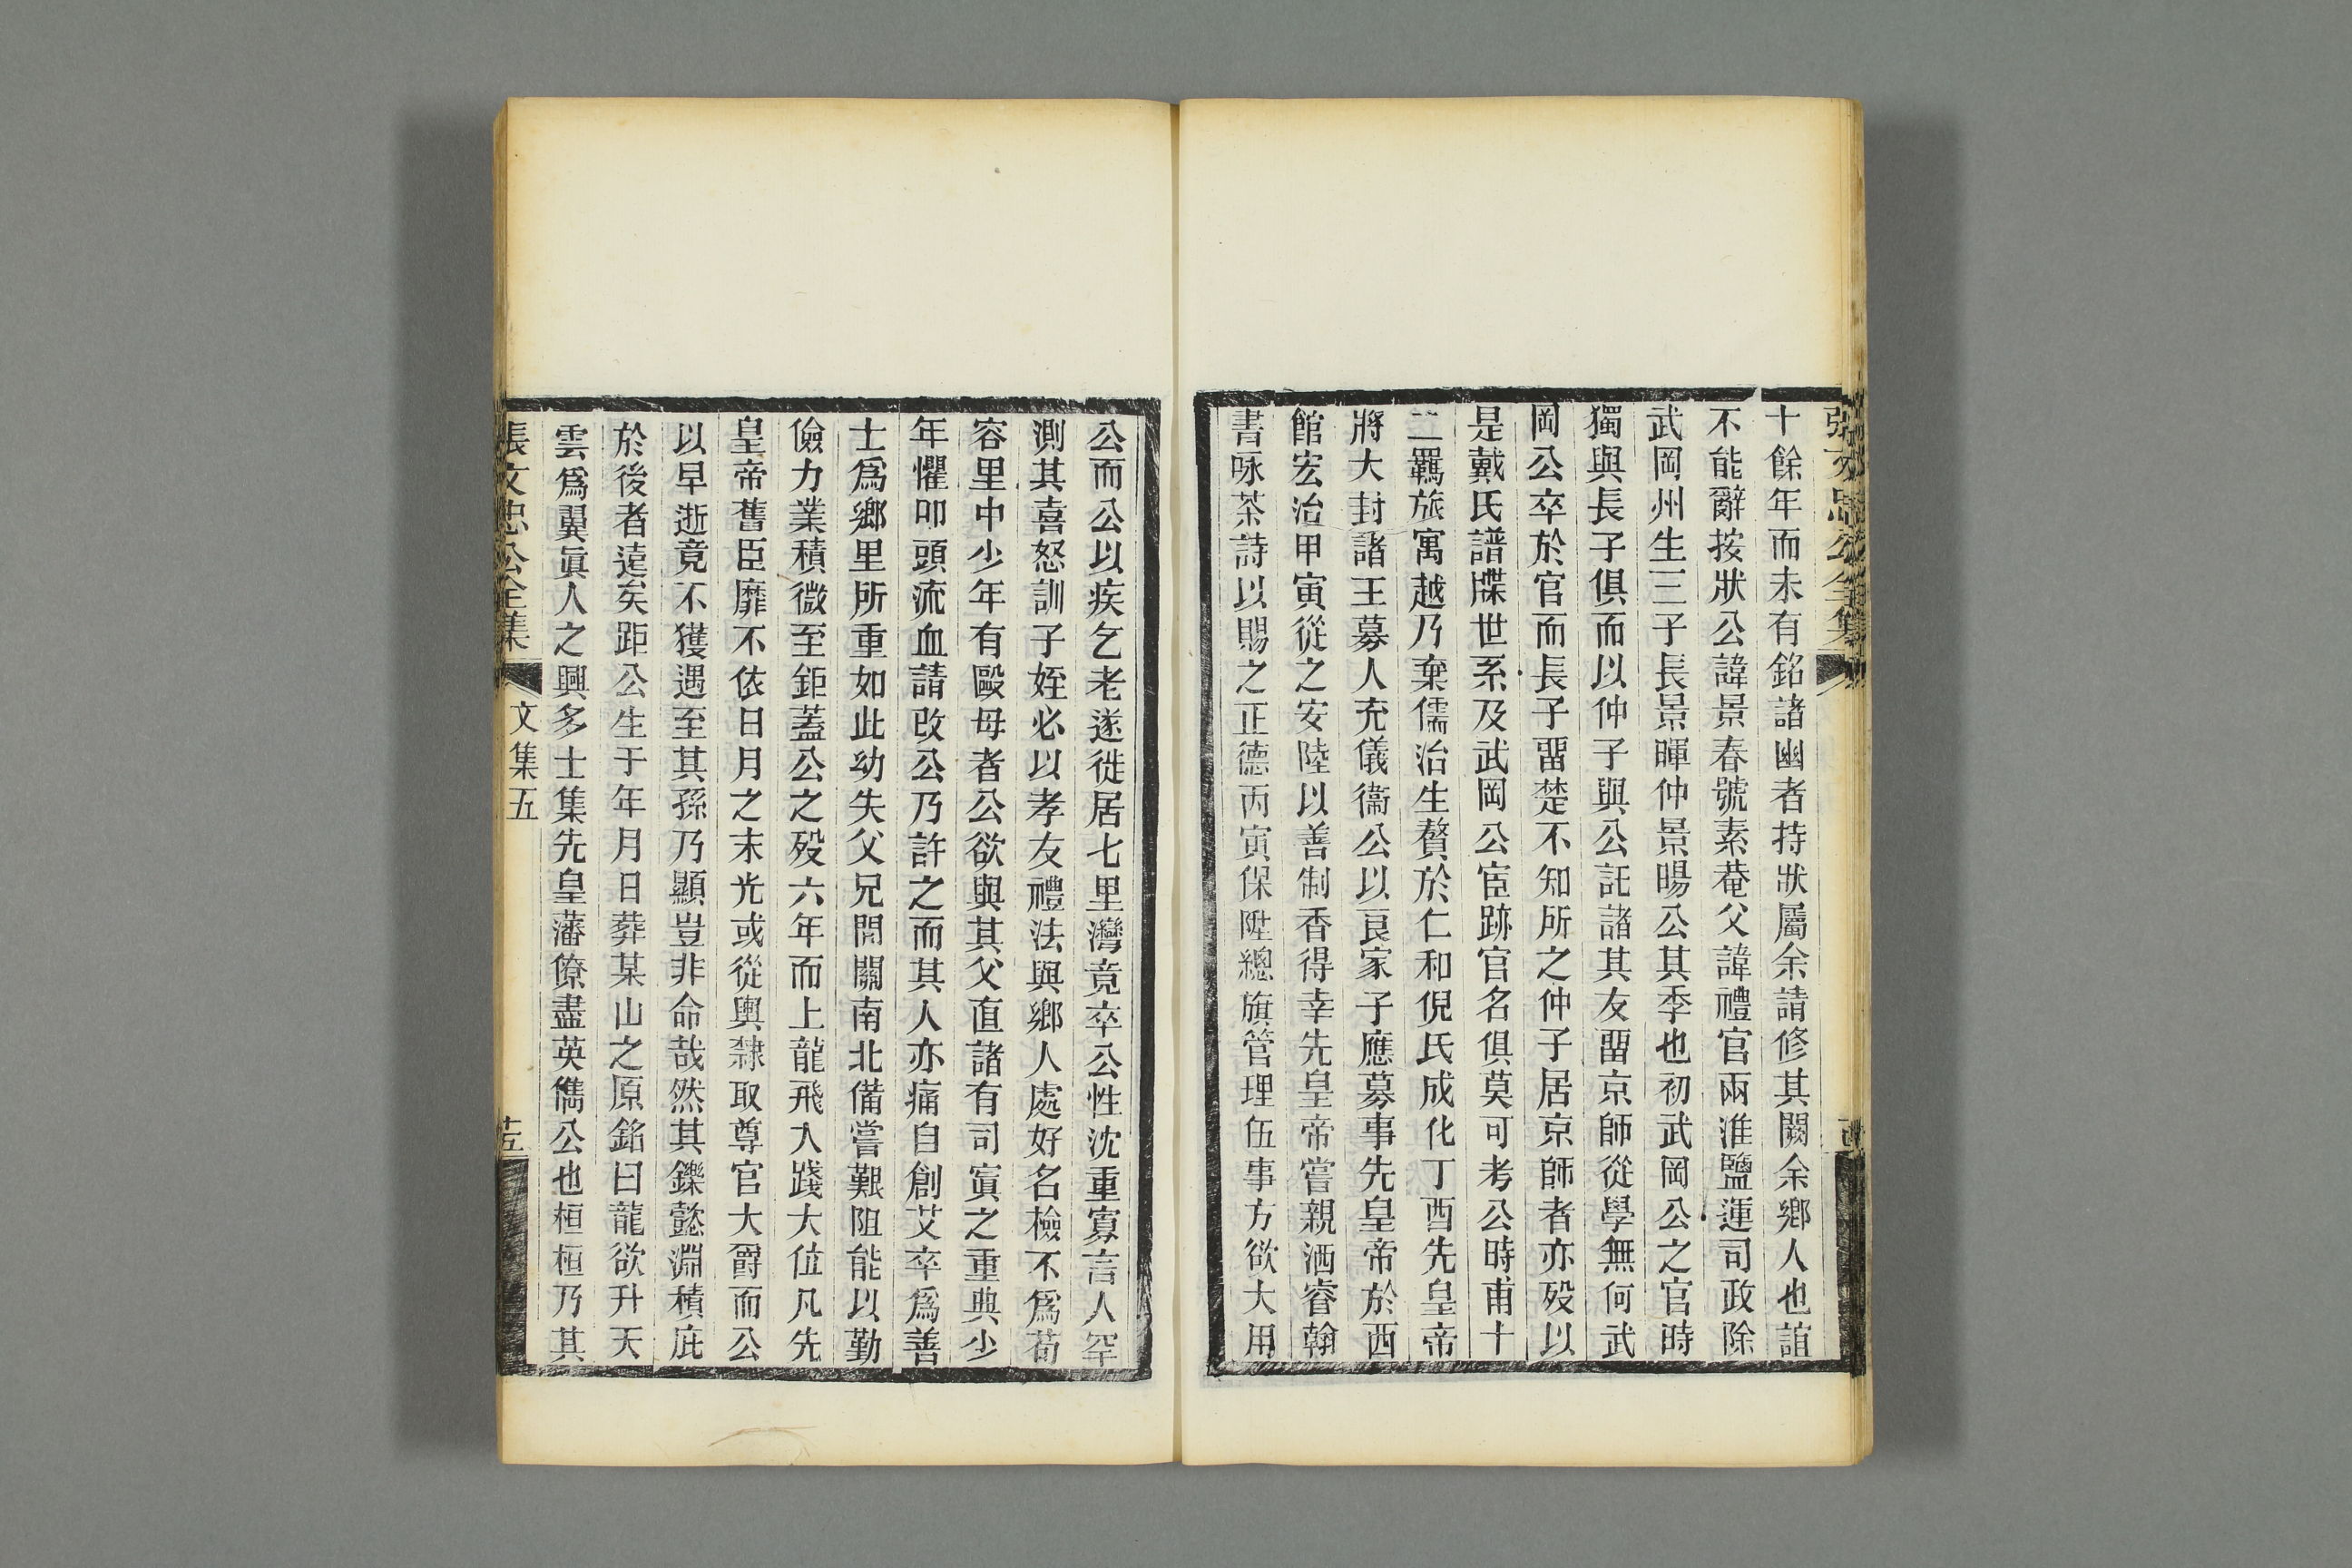 張文忠公全集
十餘年而未有銘諸幽者持狀屬余請修其闕余鄉人也誼
不能辭按狀公諱景春號素菴父諱禮官兩淮鹽運司政除
武岡州生三子長景暉仲景暘公其季也初武岡公之官時
獨與長子俱而以仲子與公託諸其友畱京師從學無何武
岡公卒於官而長子畱楚不知所之仲子居京師者亦歿以
是戴氏譜牒世系及武岡公宦跡官名俱莫可考公時甫十
二羈旅寓越乃棄儒治生贅於仁和倪氏成化丁酉先皇帝
將大封諸王募人充儀衞公以良家子應募事先皇帝於西
館宏治甲寅從之安陸以善制香得幸先皇帝嘗親洒睿翰
書咏茶詩以賜之正德丙寅保陞總旗管理伍事方欲大用
公而公以疾乞老遂徙居七里灣竟卒公性沈重寡言人罕
測其喜怒訓子姪必以孝友禮法與鄉人處好名檢不爲苟
容里中少年有毆母者公欲與其父直諸有司寘之重典少
年懼叩頭流血請改公乃許之而其人亦痛自創艾卒爲善
士爲鄉里所重如此幼失父兄閒關南北備嘗艱阻能以勤
儉力業積微至鉅蓋公之歿六年而上龍飛入踐大位凡先
皇帝舊臣靡不依日月之末光或從輿隸取尊官大爵而公
以早逝竟不獲遇至其孫乃顯豈非命哉然其鑠懿淵積庇
於後者遠矣距公生于年月日葬某山之原銘曰龍欲升天
雲爲翼眞人之興多士集先皇藩僚盡英儁公也桓桓乃其
張文忠公全集
文集五
十五